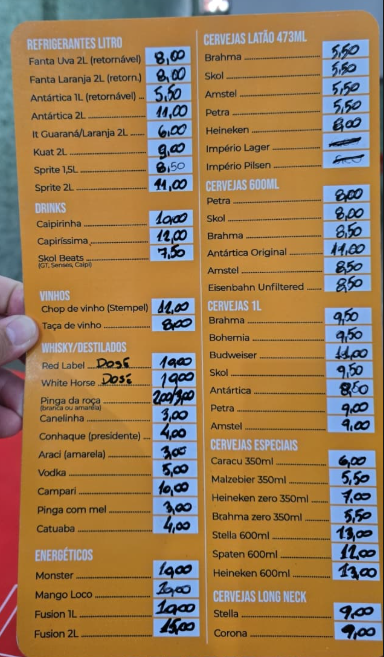 REFRIGERANTES LITRO
Fanta Uva 2L (retornável) 8,00
Fanta Laranja 2L (retorn.) 8,00
Antártica 1L (retornável) 5,50
Antártica 2L 11,00
It Guaraná/Laranja 2L 6,00
Kuat 2L 9,00
Sprite 1,5L 8,50
Sprite 2L 11,00
DRINKS
Caipirinha 10,00
Caipiríssima 12,00
Skol Beats 7,50
(GT, Senses, Caipi)
VINHOS
Chop de vinho (Stempel) 12,00
Taça de vinho 8,00
WHISKY/DESTILADOS
Red Label Dose 10,00
White Horse Dose 10,00
Pinga da roça 2,00/3,00
(branca ou amarela)
Canelinha 3,00
Conhaque (presidente) 4,00
Araci (amarela) 3,00
Vodka 5,00
Campari 10,00
Pinga com mel 3,00
Catuaba 4,00
ENERGÉTICOS
Monster 10,00
Mango Loco 10,00
Fusion 1L 10,00
Fusion 2L 15,00
CERVEJAS LATÃO 473ML
Brahma 5,50
Skol 5,50
Amstel 5,50
Petra 5,50
Heineken 8,00
Império Lager
Império Pilsen
CERVEJAS 600ML
Petra 8,00
Skol 8,00
Brahma 8,50
Antártica Original 11,00
Amstel 8,50
Eisenbahn Unfiltered 8,50
CERVEJAS 1L
Brahma 9,50
Bohemia 9,50
Budweiser 11,00
Skol 9,50
Antártica 8,50
Petra 9,00
Amstel 9,00
CERVEJAS ESPECIAIS
Caracu 350ml 6,00
Malzebier 350ml 5,50
Heineken zero 350ml 7,00
Brahma zero 350ml 5,50
Stella 600ml 13,00
Spaten 600ml 12,00
Heineken 600ml 13,00
CERVEJAS LONG NECK
Stella 9,00
Corona 9,00